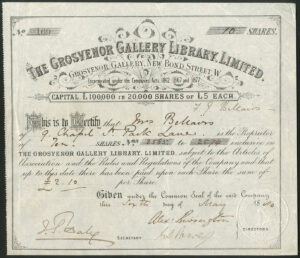 No 160 10 SHARES.
THE GROSVENOR GALLERY LIBRARY, LIMITED.
GROSVENOR GALLERY, NEW BOND STREET, W.
Incorporated under the Companies Acts, 1862, 1867 and 1877.
CAPITAL £100,000 IN 20,000 SHARES OF £5 EACH.
This is to Certify that Mrs Bellairs
9 Chapel St Park Lane is the Proprietor
of Ten SHARES No to inclusive in
THE GROSVENOR GALLERY LIBRARY, LIMITED, subject to the Articles of
Association and the Rules and Regulations of the Company and that
up to this date there has been paid upon each Share the sum of
£2.10 per Share.
Given under the Common Seal of the said Company
this day of May 18
SECRETARY.
DIRECTORS